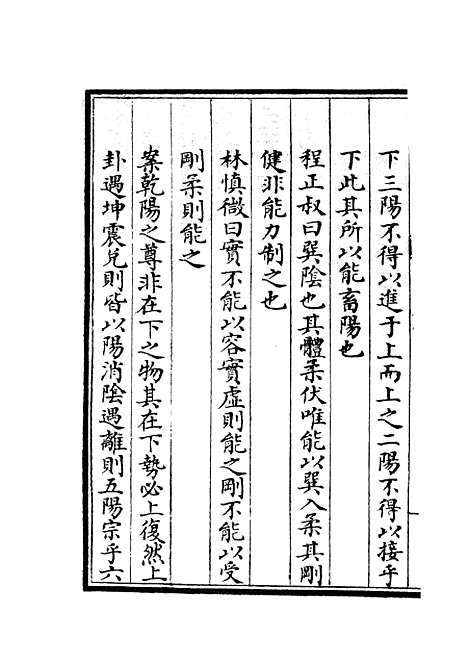 下三陽不得以進于上而上之二陽不得以接乎
下此其所以能畜陽也
程正叔曰巽陰也其體柔伏唯能以巽入柔其剛
健非能力制之也
林慎微曰實不能以容實虛則能之剛不能以受
剛柔則能之
案乾陽之尊非在下之物其在下勢必上復然上
卦遇坤震兌則皆以陽消陰遇離則五陽宗乎六